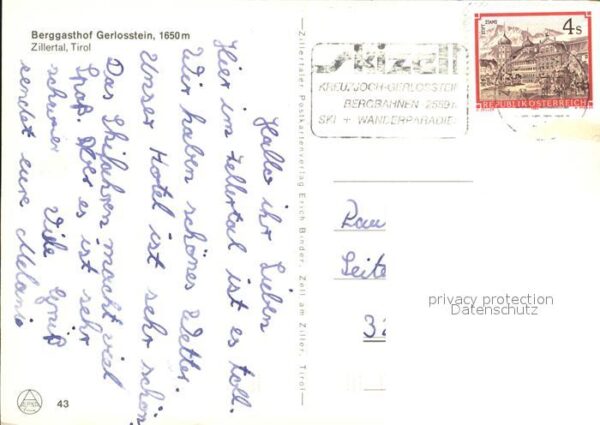 Berggasthof Gerlosstein, 1650 m
Zillertal, Tirol
Hallo ihr Lieben
Hier im Zillertal ist es toll.
Wir haben schönes Wetter.
Unser Hotel ist sehr schön
Das Skifahren macht viel
Spaß. Hier es ist sehr
schöner Viele Grüß
sendet eure Melanie
43
— Zillertaler Postkartenverlag Erich Binder, Zell am Ziller, Tirol —
KREUZJOCH-GERLOSSTEIN
BERGBAHNEN
SKI + WANDERPARADIES
STIFT STAMS
4 S
REPUBLIK ÖSTERREICH
Seite
32
privacy protection
Datenschutz